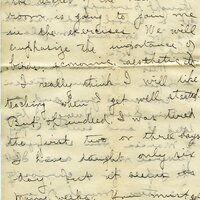 room is going to join me
in the exercises. We will
emphasize the importance of
I really think I will like
teaching when I get well started
But indeed I was tired
the first two or three days
I have taught only six
days but it seems as
many weeks.